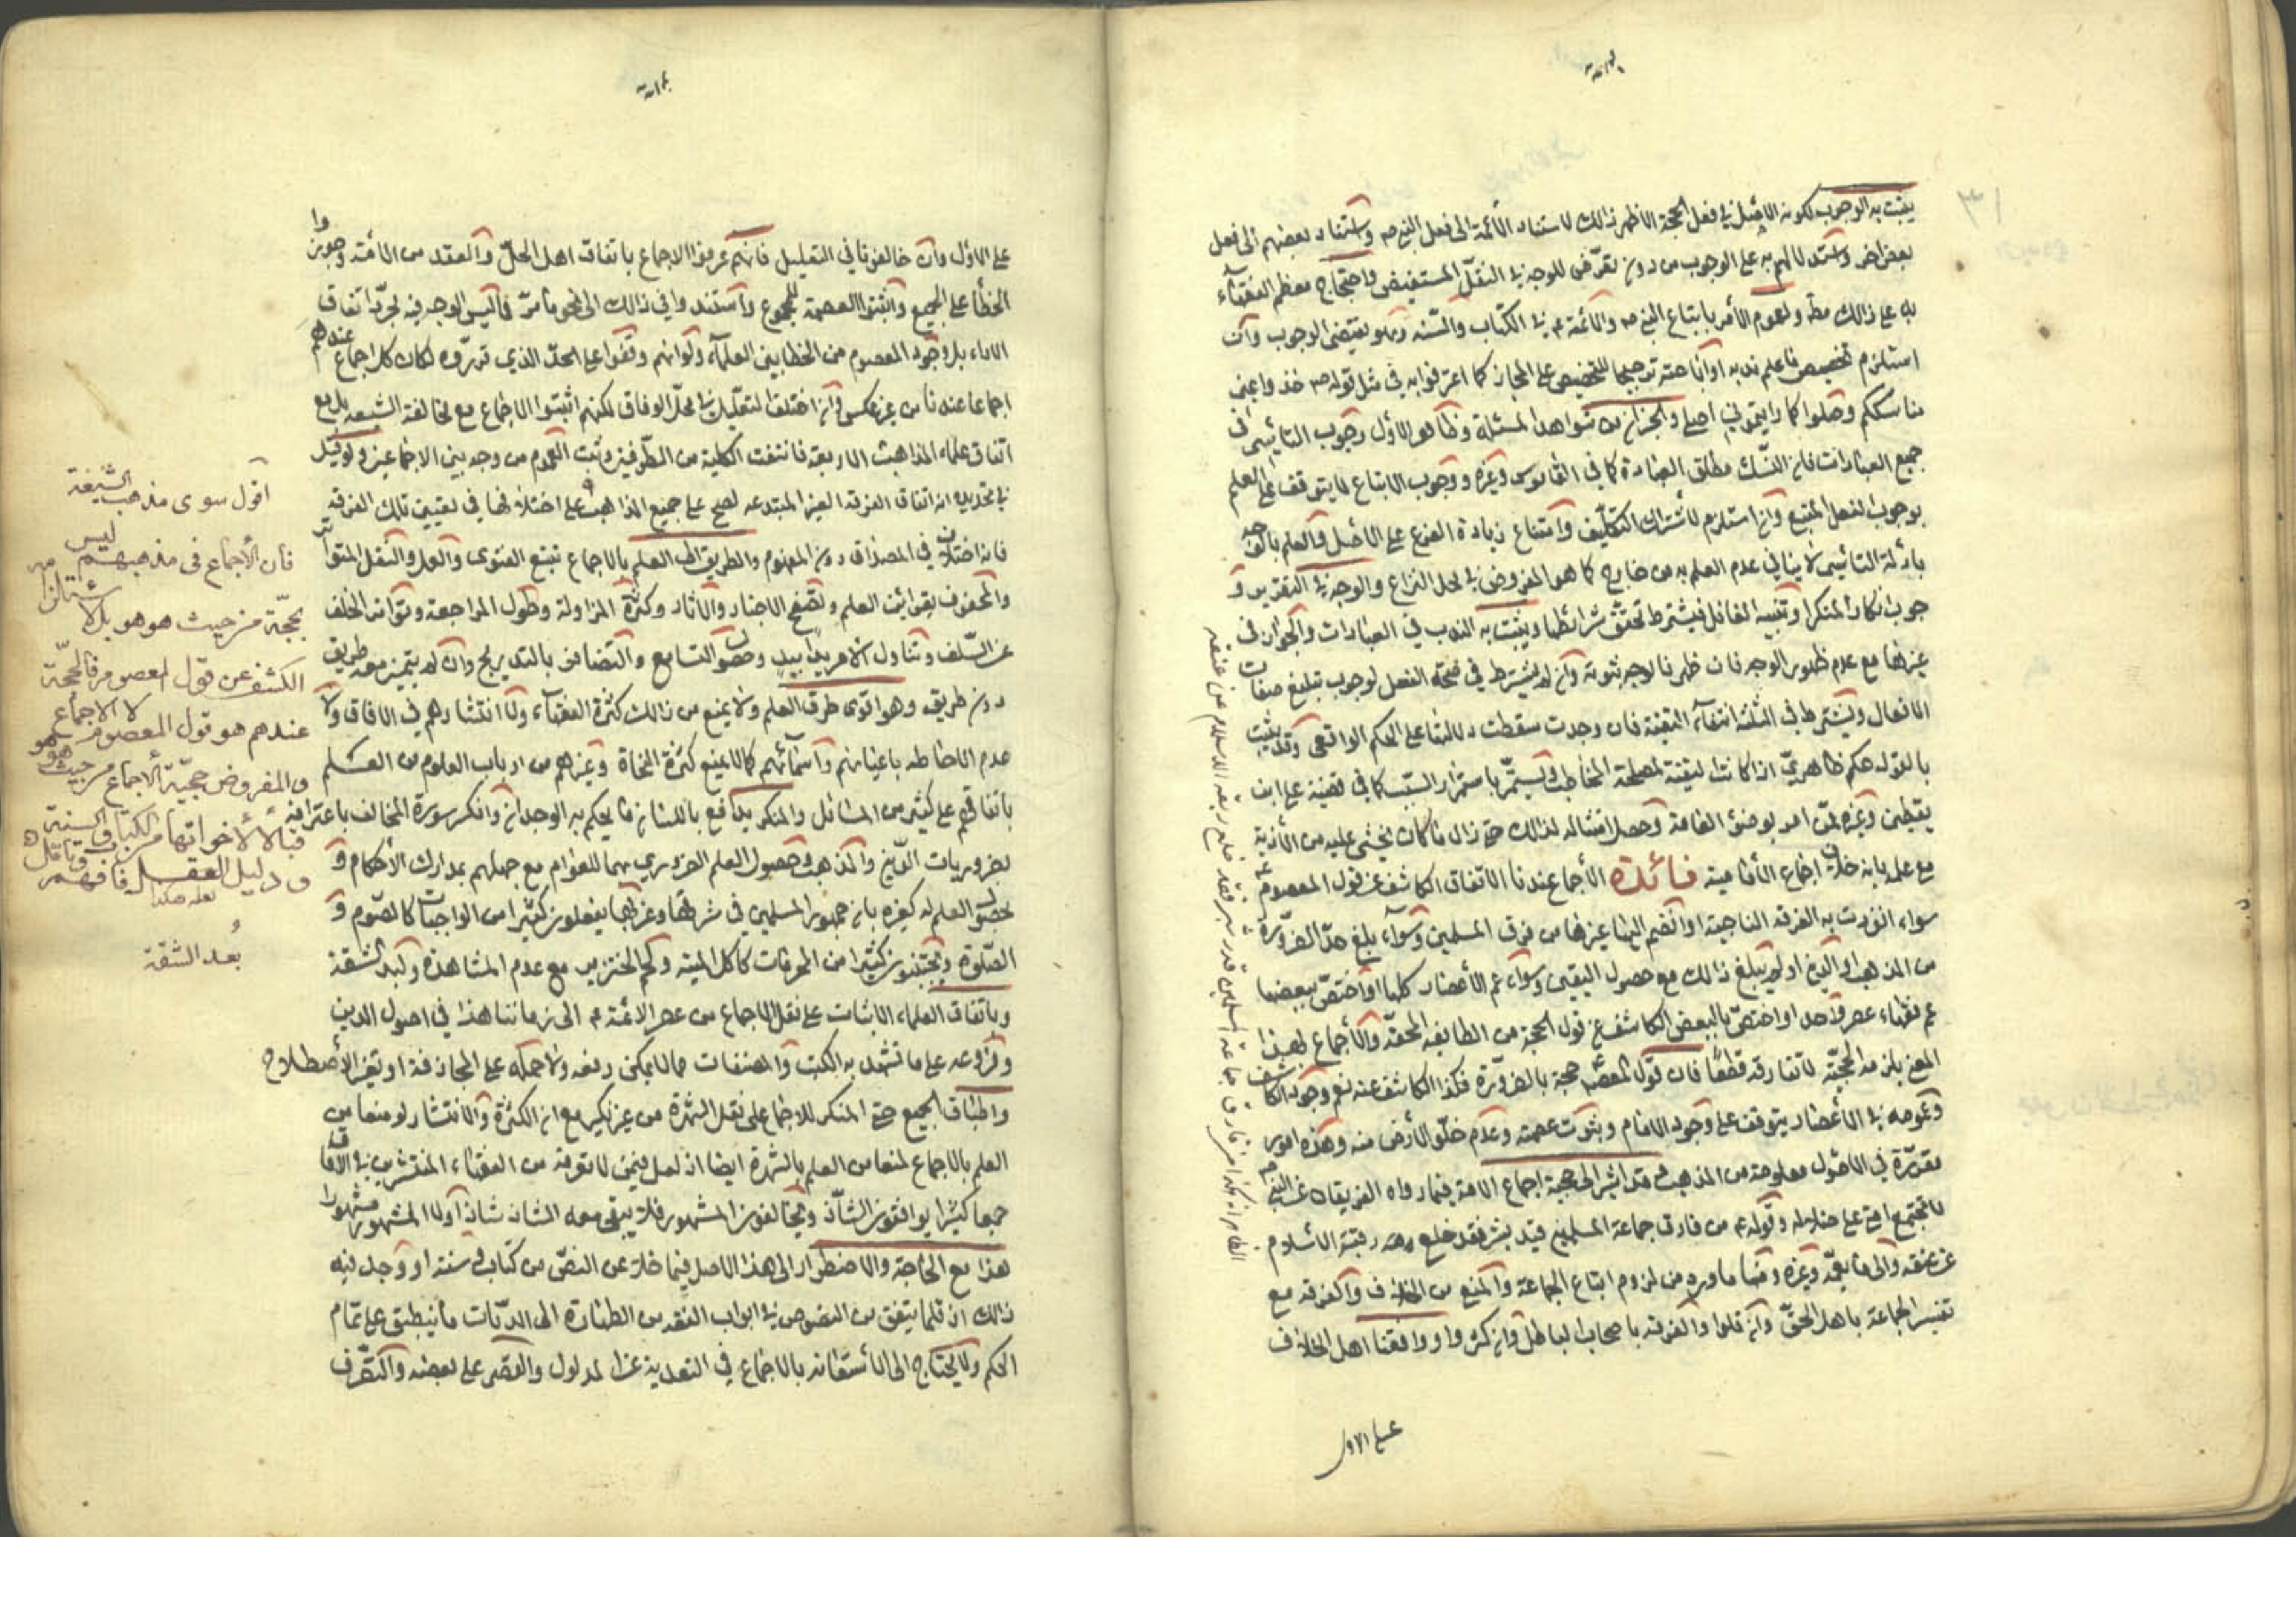 يثبت به الوجوب لكونه الاصل في فعل الحجة الاظهر ذلك لاستناد الأئمة الى فعل النبي ص واستناد بعضهم الى فعل
بعض اخر واستدلالهم به على الوجوب من دون تعرّض للوجه في النقل المستفيض واحتجاج معظم الفقهآء
به على ذلك مط ولعموم الأمر باتباع النبي ص والأئمة ع في الكتاب والسّنه وهو يقتضى الوجوب وان
استلزم تخصيص ما علم ندبه او اباحته ترجيحا للتخصيص على المجاز كما اعترفوا به في مثل قوله ص خذوا عنى
مناسككم وصلوا كما رايتموني اصلي والجزان من شواهد المسئلة وظاهر الاول وجوب التأسّى في
جميع العبادات فان النسك مطلق العبادة كما في القاموس وغيره ووجوب الاتباع لا يتوقف على العلم
بوجوب الفعل المتبع وان استلزم لاشتراك التكليف وامتناع زيادة الفرع على الاصل والعلم بالوجه
بادلة التأسّى لا ينافي عدم العلم به من خارج كما هو المفروض في محل النزاع والوجه في التقرير و
جوب انكار المنكر وتنبيه الغافل فيشترط تحقق شرائطها ويثبت به الندب في العبادات والجواز في
غيرها مع عدم ظهور الوجه فان ظهر فالوجه ثبوته وان لم يشترط في صحة الفعل لوجوب تبليغ صفات
الافعال ويشترط في الثلثة انتفآء التقية فان وجدت سقطت دلالتها على الحكم الواقعى وقد يثبت
بالقول حكم ظاهريّ اذا كانت لتقية لمصلحة المخاطب ويستمرّ باستمرار السبب كما في قضية على ابن
يقطين وغيره ممّن امر بوضوء العامة وحصل امتثاله لذلك حتى زال ما كان يخشى عليه من الأذية
مع علمه بانه خلاف اجماع الأمامية فائدة الأجماع عندنا الاتفاق الكاشف عن قول المعصوم ع
سواء انفردت به الفرقة الناجية او انضم اليها غيرها من فرق المسلمين وسوآء بلغ حدّ الضرورة
من المذهب او الدين او لم يبلغ ذلك مع حصول اليقين وسوآء عم الأعصار كلها او اختصّ ببعضها
عم فقهاء عصر واحد او اختصّ بالبعض الكاشف عن قول الحجة من الطايفه المحقّه والأجماع بهذا
المعنى يلزمه الحجيّة لا تفارقه قطعًا فان قول المعصوم حجة بالضرورة فكذا الكاشف عنه نعم وجود الكاشف
وعمومه في الأعصار يتوقف على وجود الامام وثبوت عصمته وعدم خلوّ الأرض منه وهذه امور
مقرّرة في الاصول معلومة من المذهب وقد اشير الى حجية اجماع الامة فيما رواه الفريقان عن النبي ص
لا تجتمع امتى على ضلالة وقوله ع من فارق جماعة المسلمين قيد شبر فقد خلع ربقة الأسلام
عن عنقه والى ما يعمّه وغيره وهما ما ورد من لزوم اتباع الجماعة والمنع من الخلاف والفرقه مع
تفسير الجماعة باهل الحقّ وان قلوا والفرقه باصحاب الباطل وان كثروا ووافقنا اهل الخلاف
على الاول
على الاول وان خالفونا في التعليل فانهم عرفوا الاجماع باتفاق اهل الحلّ والعقد من الأمّة وجوزوا
الخطأ على الجميع واثبتوا العصمة للمجموع واستندوا في ذلك الى نحو ما مرّ فاليس الوجه فيه مجرّد اتفاق
الاراء بل وجود المعصوم من الخطا بين العلمآء ولو انهم وقفوا على الحدّ الذي قرّروه لكان كل اجماع عندهم
اجماعا عندنا من غير عكس وان اختلفا لتعليل في محلّ الوفاق لكنهم اثبتوا الاجماع مع مخالفة الشيعه بل مع
اتفاق علماء المذاهب الاربعة فانتفت الكلية من الطرفين وثبت العموم من وجه بين الاجماعين ولو قيل
في تحديده انه اتفاق الفرقة الغير المبتدعه لصح على جميع المذاهب على اختلافها في تعيين تلك الفرقه
فانه اختلاف في المصداق دون المفهوم والطريق الى العلم بالاجماع تتبع الفتوى والعمل والنقل المتواتر
والمحفوف بقرائن العلم وتصفح الاخبار والآثار وكثرة المزاولة وطول المراجعة وتواتر الخلف
عن السّلف وتناول الامر يدا بيد وحصول التسامع والتضافر بالتدريج وان لم يتميز معه طريق
دون طريق وهو اقوى طرق العلم ولا يمنع من ذلك كثرة الفقهآء ولا انتشارهم في الافاق ولا
عدم الاحاطه باعيانهم واسمائهم كما لا يمنع كثرة النحاة وغيرهم من ارباب العلوم من العلم
باتفاقهم على كثير من المسائل والمنكر يدافع باللسان ما يحكم به الوجدان وانكر سورة المخالف باعترافه
بضروريات الدّين والمذهب وحصول العلم الضروري بهما للعوام مع جهلهم بمدارك الأحكام و
بحصول العلم له كغيره بان جمهور المسلمين في شرقها وغربها يفعلون كثيرا من الواجبات كالصّوم و
الصّلوة ويجتنبون كثيرا من المحرمات كاكل الميتة ولحم الخنزير مع عدم المشاهدة ولبعد الشقة
وباتفاق العلماء الاثبات على نقل الاجماع من عصر الائمة ع الى زماننا هذا في اصول الدين
وفروعه على ما تشهد به الكتب والمصنفات مما لا يمكن دفعه ولا حمله على المجازفة او تغير الأصطلاح
واطباق الجميع حتى المنكر للاجماع على نقل الشهرة من غير نكير مع ان الكثرة والانتشار لو منعا من
العلم بالاجماع لمنعا من العلم بالشهرة ايضا اذ لعل فيمن لا نعرفه من الفقهاء المنتشرين في الآفاق
جمعا كثيرا يوافقون الشاذ ويخالفون المشهور فلا يبقى معه الشاذ شاذا ولا المشهور مشهورا
هذا مع الحاجة والاضطرار الى هذا الاصل فيما خلا عن النصّ من كتاب او سنة او وجد فيه
ذلك اذ قلما يتفق من النصوص في ابواب الفقه من الطهارة الى الديّات ما ينطبق على تمام
الحكم ولا يحتاج الى الأستعانه بالاجماع في التعدية عن المدلول والقصر على بعضه والتصّرف
اقول سوى مذهب الشيعة
فان الأجماع فى مذهبهم ليس
بحجّة من حيث هو هو بل لاشتماله
الكشف عن قول المعصوم فالحجّة
عندهم هو قول المعصوم لا الاجماع
والمفروض حجيّة الأجماع من حيث هو هو
قبالا لأخواتها من الكتاب والسنة
و دليل العقل فافهم وتأمل
بُعد الشقة